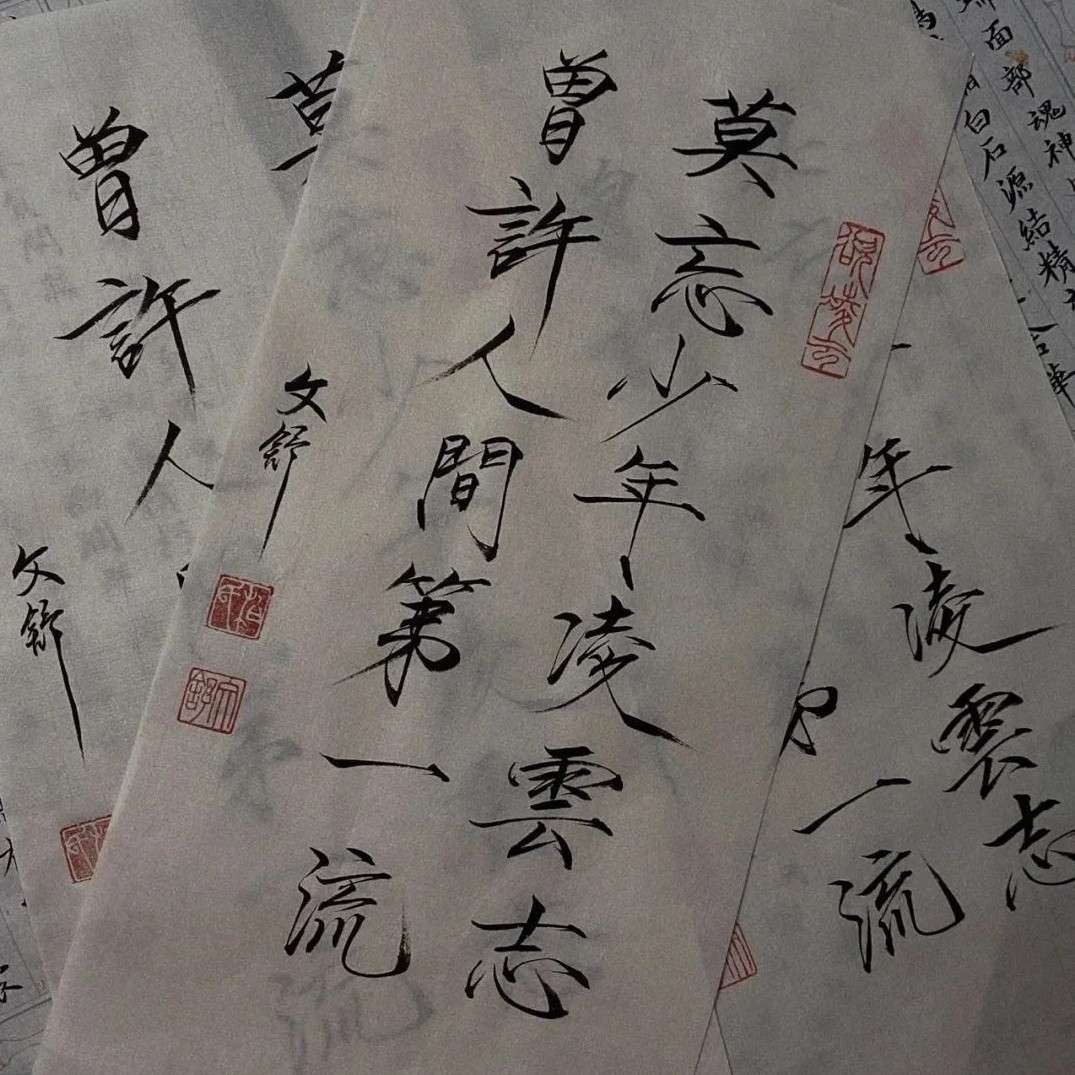 莫忘少年凌雲志
曾許人間第一流
文舒
曾許人
文舒
年凌雲志
一流
面部魂神
白石源結精